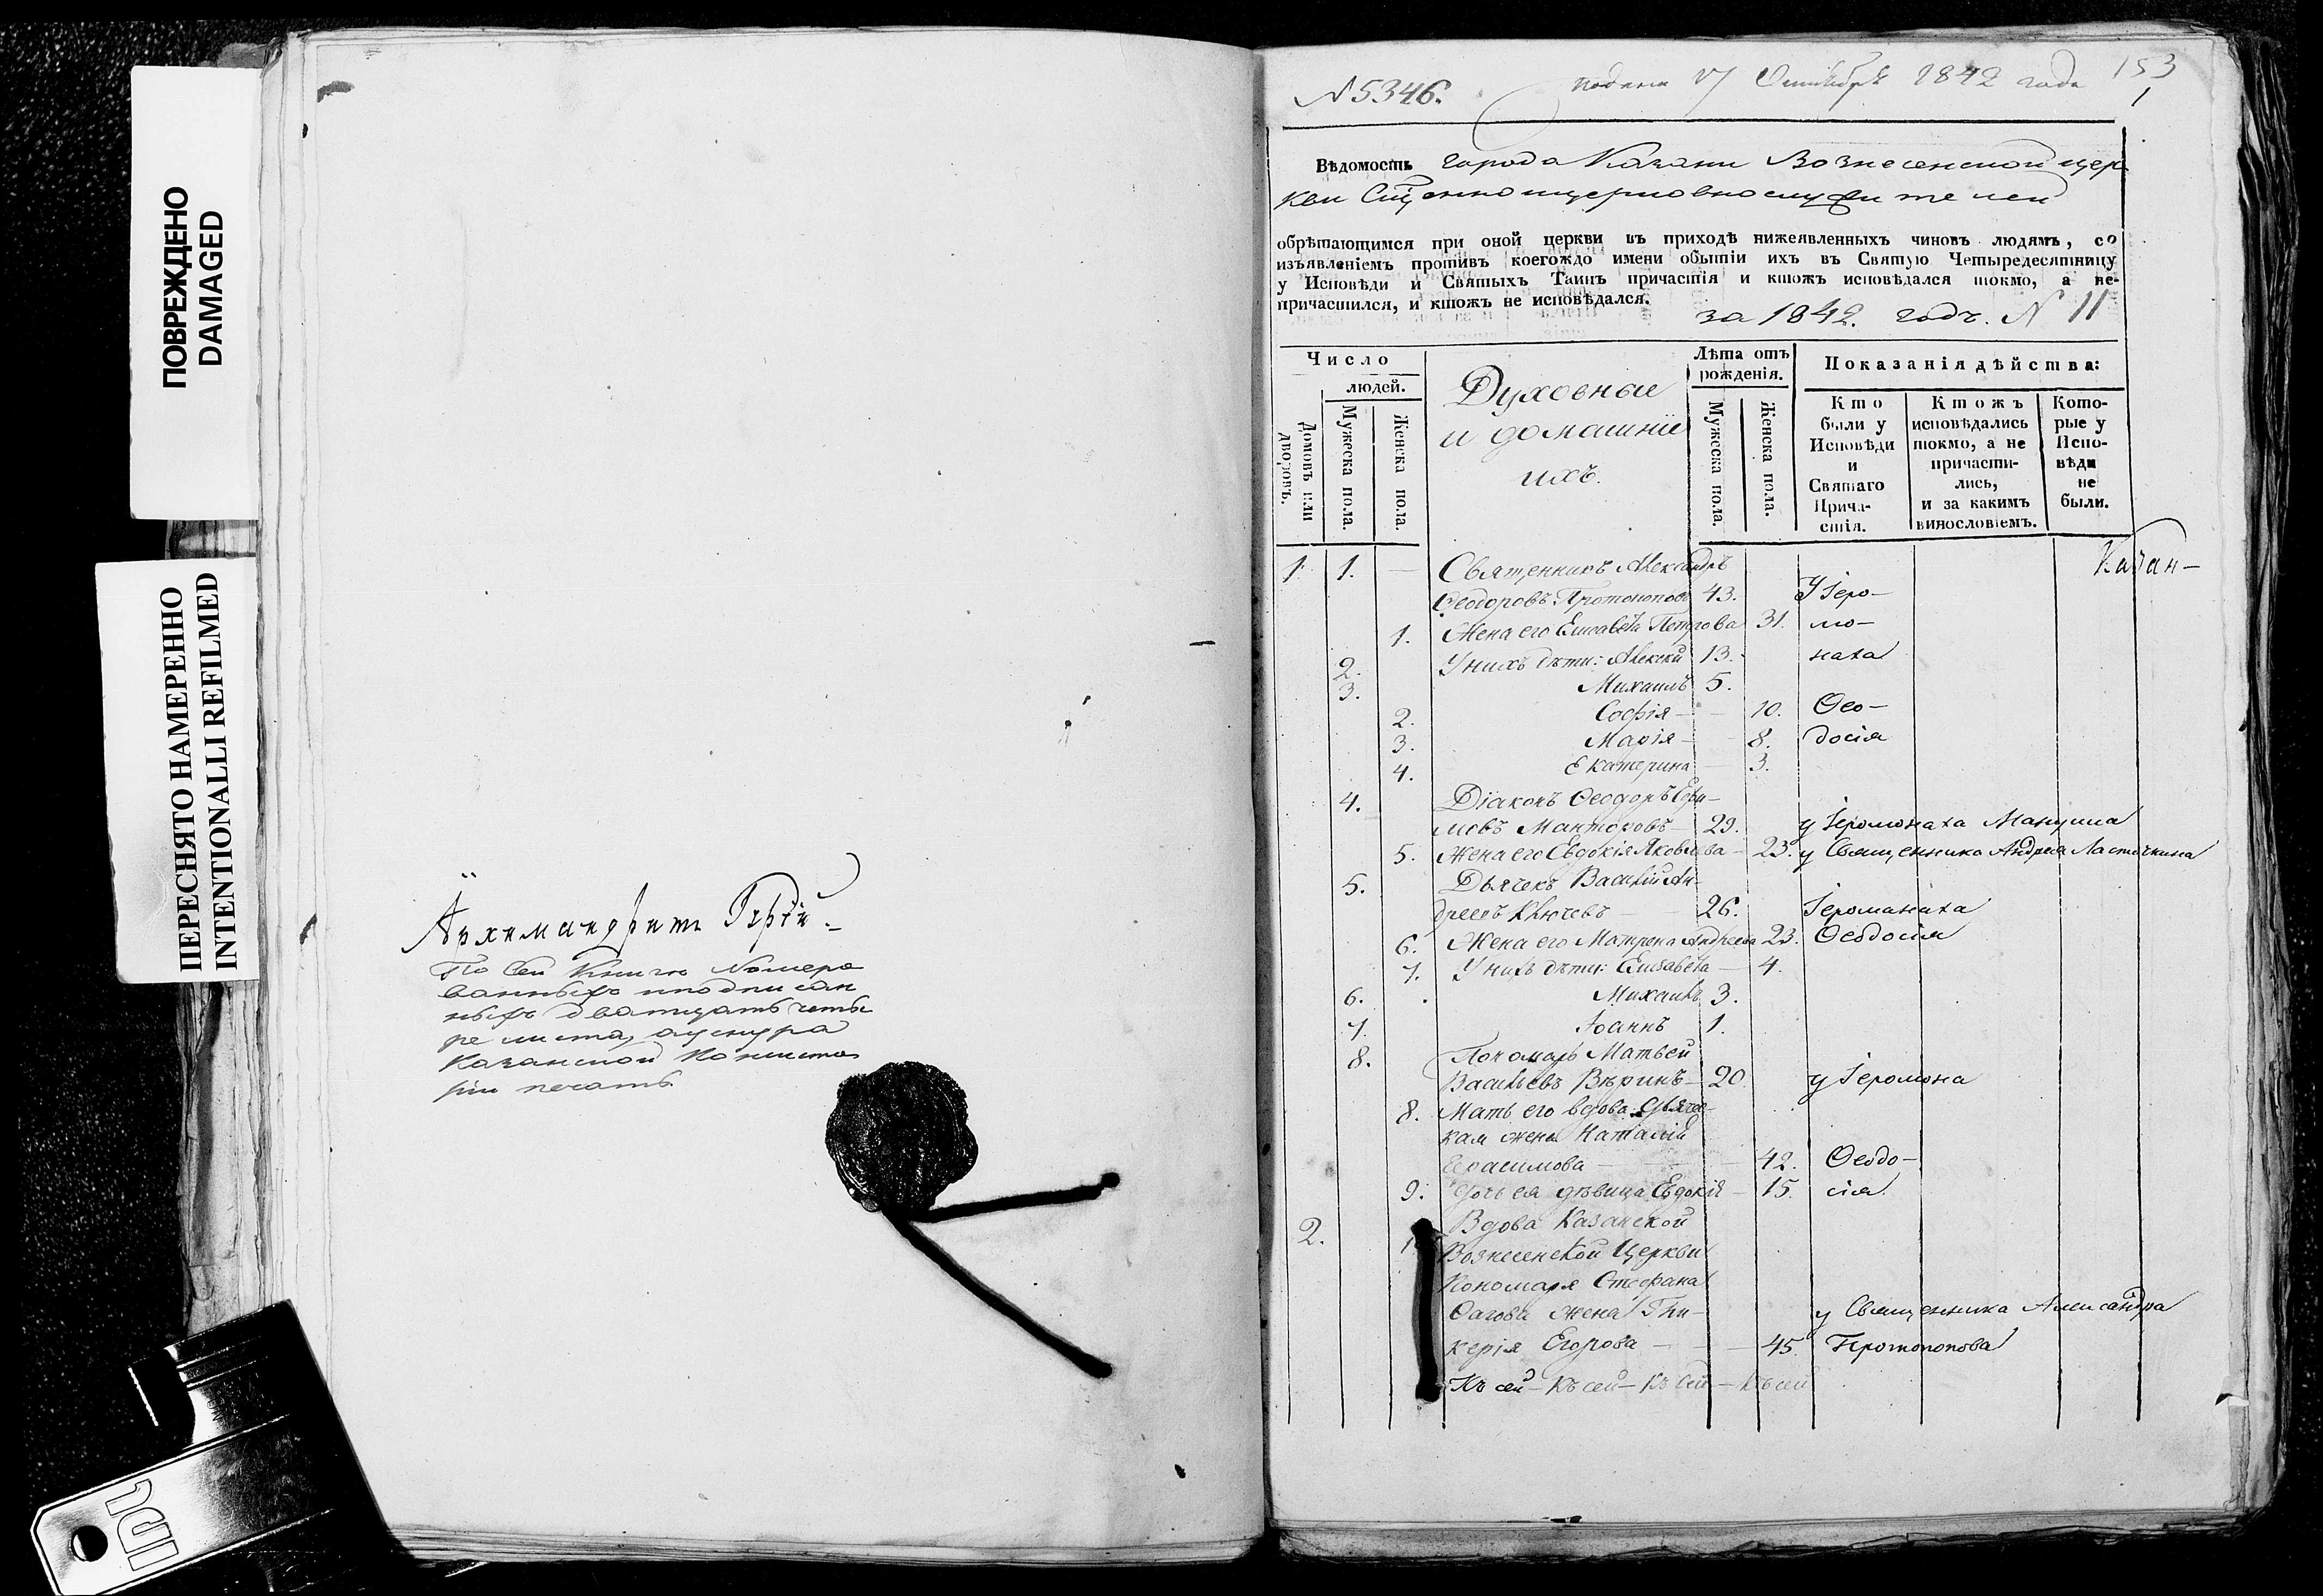 ПОВРЕЖДЕНО
DAMAGED
ПЕРЕСНЯТО НАМЕРЕННО
INTENTIONALLI REFILMED
Архимандритъ
По сей книге Номеро
ванныхъ и подписан
ныхъ дватцать четы
ре листа, а у шнура
Казанской Консисто
ріи печать.
№ 5346.
подана 17 Октября 1842 года
153
1
Вѣдомость города Казани Вознесенской цер
кви Сщенноцерковнослужителей
обрѣтающимся при оной церкви въ приходѣ нижеявленныхъ чиновъ людямъ, со
изъявленіемъ противъ коегождо имени обытіи ихъ въ Святую Четыредесятницу
у Исповѣди и Святыхъ Таинъ причастія и ктожъ исповѣдался токмо, а не-
причастился, и ктожъ не исповѣдался.
за 1842. годъ. № 11
Число
людей.
Домовъ или дворовъ.
Мужеска пола.
Женска пола.
Духовные
и домашніе
ихъ.
Лѣта отъ
рожденія.
Мужеска пола.
Женска пола.
Показанія дѣйства:
Кто
были у
Исповѣди
и
Святаго
Прича-
стія.
Ктожъ
исповѣдались
токмо, а не
причасти-
лись,
и за какимъ
винословіемъ.
Кото-
рые у
Испо-
вѣди
не
были.
1 1. — Священникъ Александръ
Ѳеодоровъ Протопоповъ 43. У Іеро—
1. Жена его Елисавета Петрова 31. мо—
2. У нихъ дѣти: Алексей 13. наха
3. Михаилъ 5.
2. Софія — 10. Ѳео—
3. Марія — 8. досія
4. Екатерина — 3.
4. Діаконъ Ѳеодоръ Ефи—
мовъ Манторовъ — 29. у Іеромонаха
5. Жена его Евдокія Яковлева — 23. у Священника Андрея Ласточкина
5. Дьячекъ Василій Ан-
дреевъ Ключевъ — 26. Іеромонаха
6. Жена его Матрена Андреева 23. Ѳеодосія
7. У нихъ дѣти: Елисавета — 4.
6. Михаилъ 3.
7. Іоаннъ 1.
8. Пономарь Матвей
Васильевъ Вѣринъ — 20 у Іеромона
8. Мать его вдова дьячев-
кая жена Наталія
Герасимова — 42. Ѳеодо—
9. дочь ея дѣвица Евдокія — 15. сія.
2. Вдова Казанской
Вознесенской Церкви
Пономаря Стефана
жена Гли-
керія Егорова — 45. у Священника Александра
Протопопова
Къ сей — Къ сей — Къ сей — Къ сей